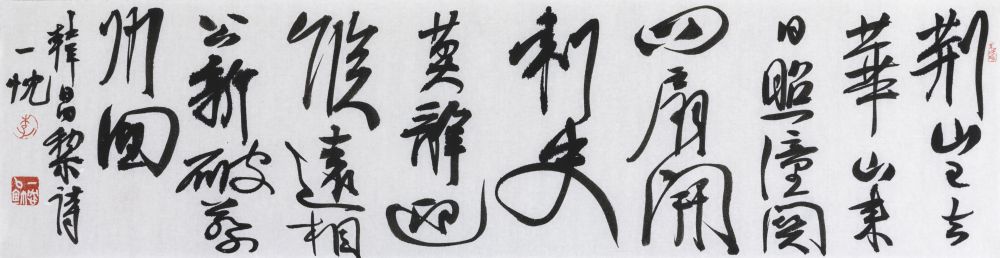 荆山已去
華山来
日照潼関
四扇開
刺史
莫辭迎
候遠相
公新破蔡
州回
韓昌黎詩
一忱
李